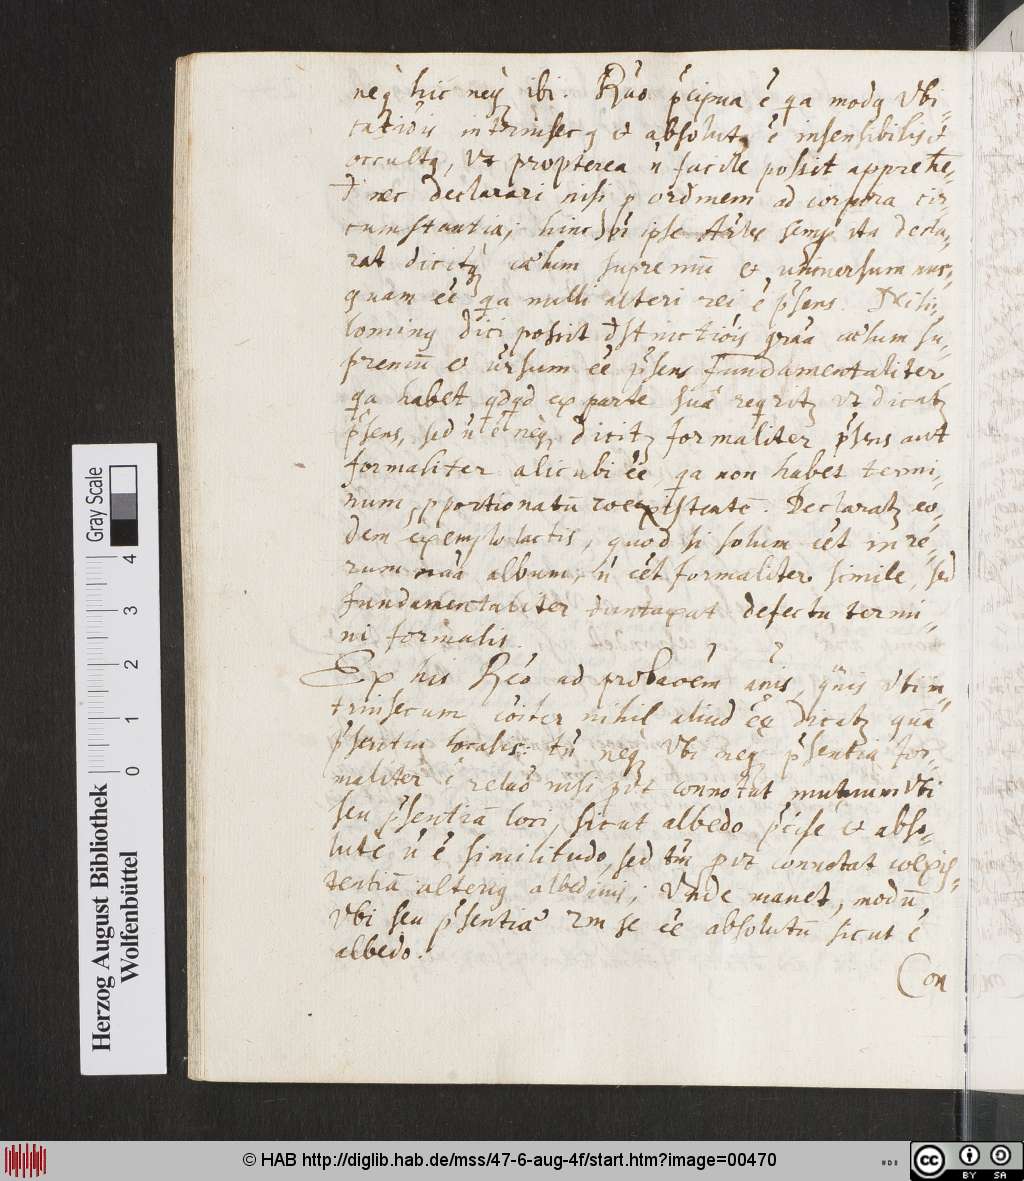 neq hic neq ibi. Rõ pcipua ẽ qa modq Vbi-
cationis intrinsecq et absolutq ẽ insensibilis et
occultq, Vt propterea ñ facile possit apprehe-
d nec declarari nisi p ordinem ad corpora cir-
cumstantia; hinc ipse semp ita decla-
rat dicitq cælum supremũ et universum nus-
quam ẽe qa nulli alteri rei ẽ psens. Nihi-
lominq dici possit dstinctiõis grãa cælum su-
premũ et ũrsum ẽe psens fundamentaliter
qa habet qdqd ex parte suã reqritz ut dicatz
psens, sed ñ ẽ neq dicitz formaliter psens aut
formaliter alicubi ẽe, qa non habet termi-
num pportionatũ coexistentẽ. Declaratz eo-
dem exemplo lactis, quod si solum ẽet in re-
rum nãa album, ñ ẽet formaliter simile, sed
fundamentaliter duntaxat defectu termi-
ni formalis.
Ex his Rẽo ad probaõem ãnis, qũis Vbi in-
trinsecum cõiter nihil aliud ẽe dicatz quã
psentia localis: tñ neq Vbi neq psentia for-
maliter ẽ relaõ nisi put connotat mutuum Vbi
seu psentiã loci, sicut albedo pcise et abso-
lutẽ ñ ẽ similitudo, sed tm put connotat coexis-
tentiã alteriq albedinis; Unde manet, modũ
Vbi seu psentiæ sm se ẽe absolutũ sicut ẽ
albedo.
Con
Herzog August Bibliothek
Wolfenbüttel
0 1 2 3 4
Gray Scale
© HAB http://diglib.hab.de/mss/47-6-aug-4f/start.htm?image=00470
cc BY SA